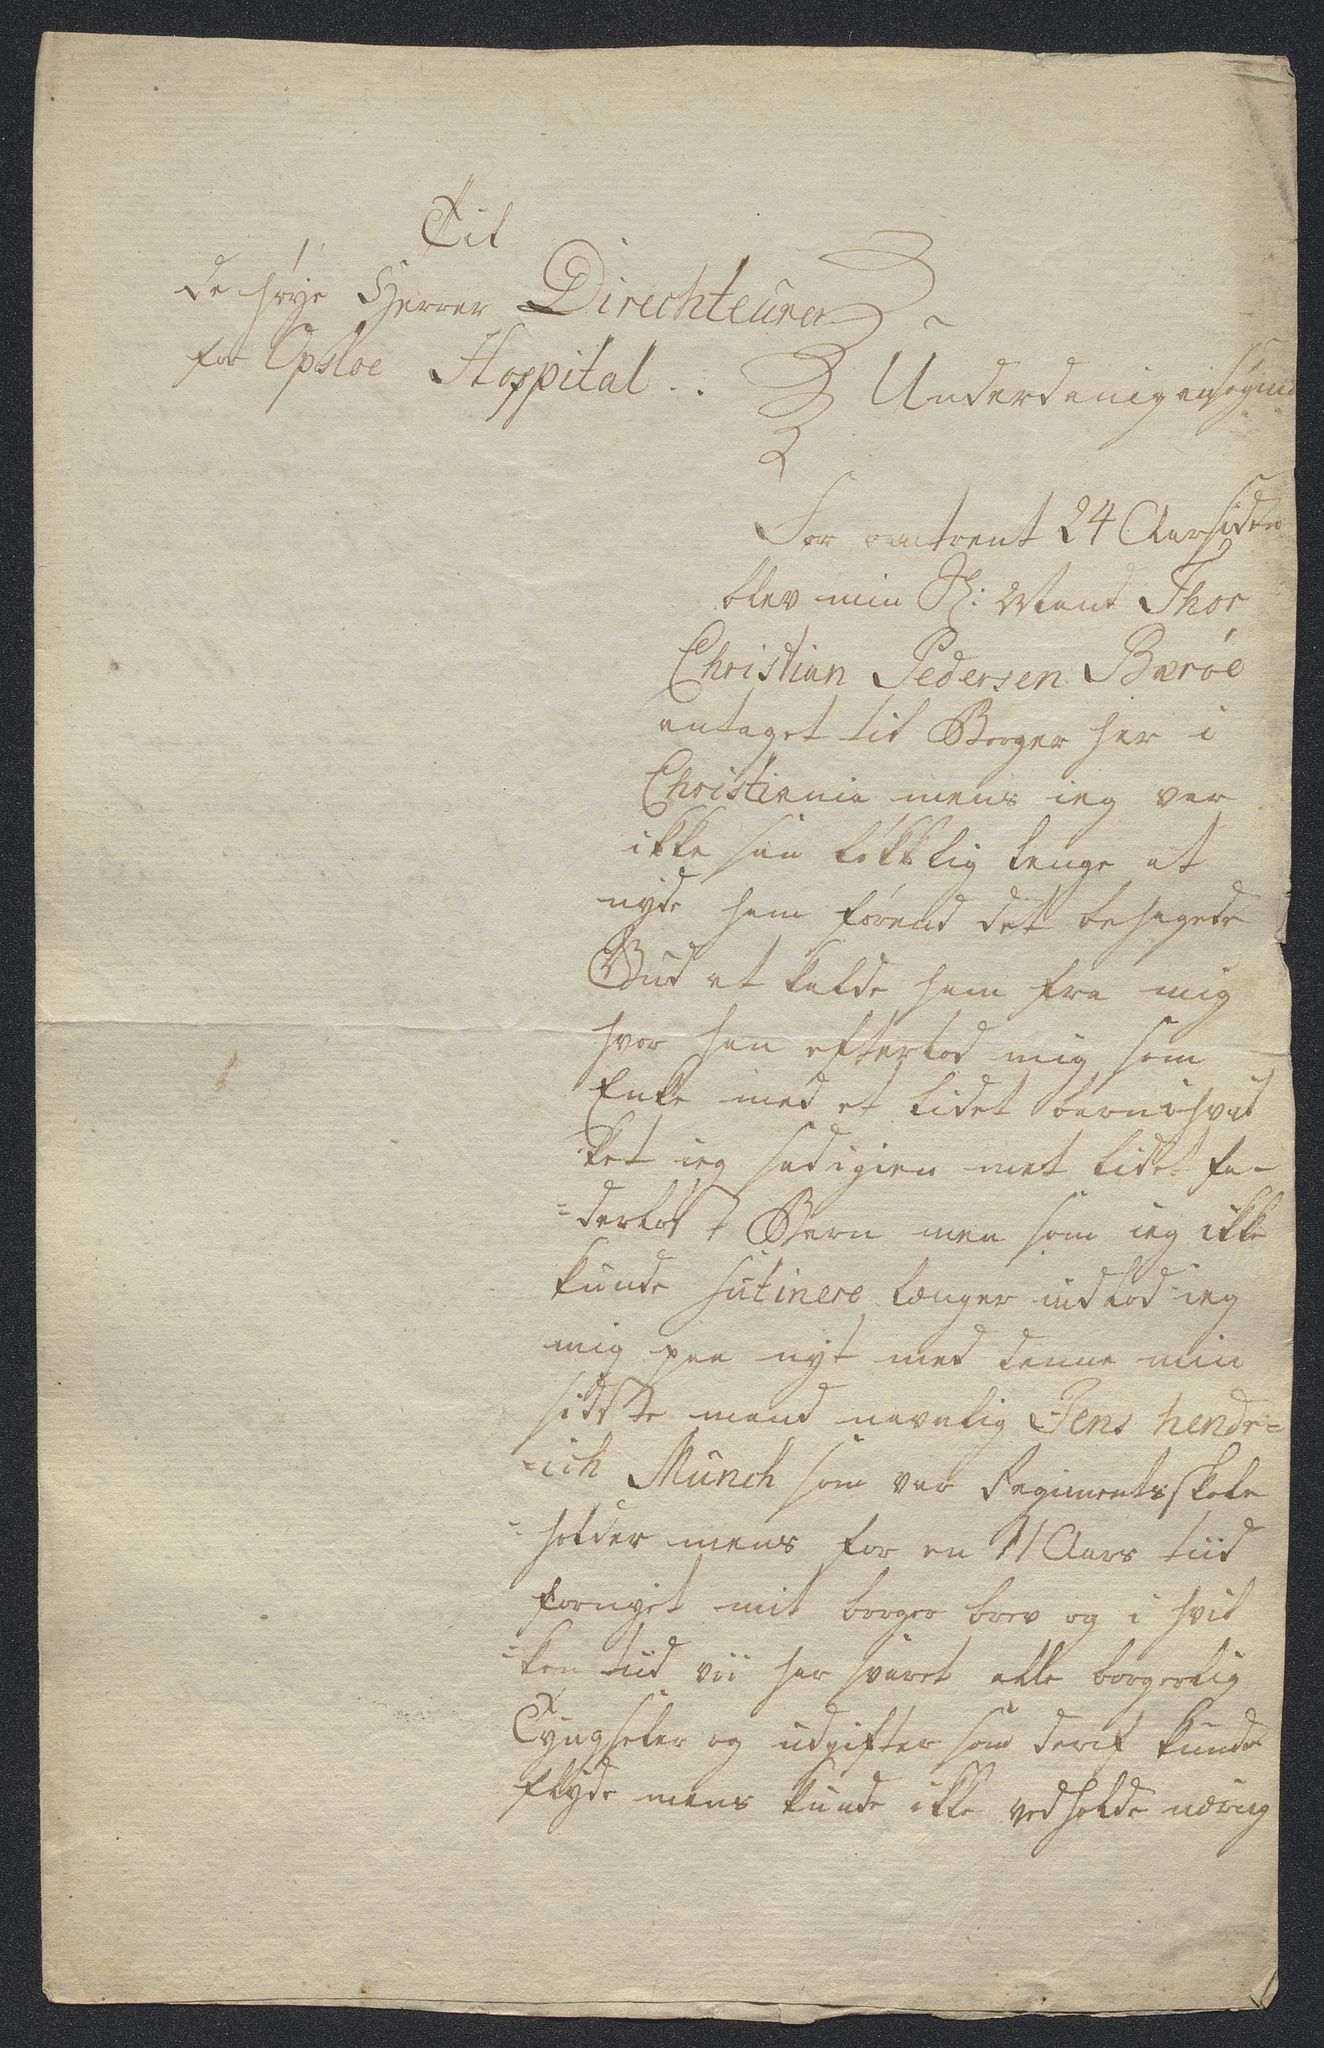 Til
de høye Herrer Direchteurer
for Opsloe Hospital..
Underdanigen
For omtrent 24 Aar siden
blev min S: Mand Thor
Christian Pedersen Bærøe
antaget til Borger her i
Christiania mens ieg var
ikke saa løkklig lenge at
nyde ham førend det behagede
Gud at kalde ham fra mig
hvor han efterlod mig som
Enke med et lidet barn hvil
ket ieg sad igien met lidet fa-
-derløst Barn men som ieg ikke
kunde sutinere længer indlod ieg
mig paa nyt med denne min
sidste mand navnlig Jens hendr=
-ich Munch som var Regimentsskole
-holder mens for en 11 Aars tiid
fornyet mit borger brev og i hvil
-ken tiid vii har svaret alle borgerlig
Tyngseler og udgifter som deraf kunde
flyde mens kunde ikke vedholde næring